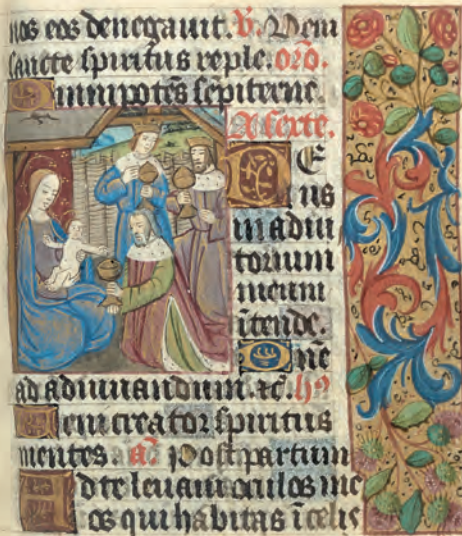 nos eos denegauit. V. Veni
sancte spiritus reple. oro.
Omnipotēs sēpiterne.
A sexte.
DE
us
in adiu
torium
meum
ītende.
Dne
ad adiuuandum. ⁊c. hꝰ
Veni creator spiritus
mentes a. a. Post partum
Ad te leuaui oculos me
os qui habitas ī celis